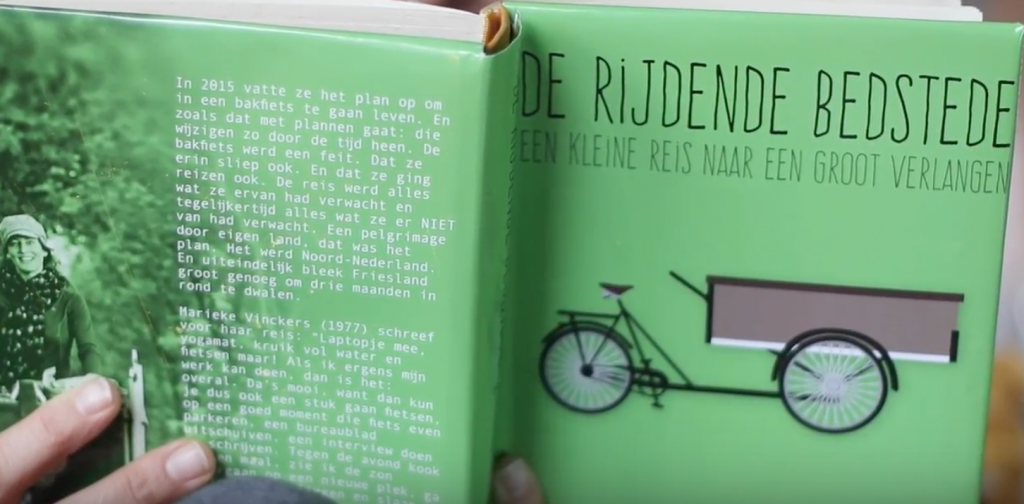 In 2015 vatte ze het plan op om
in een bakfiets te gaan leven. En
zoals dat met plannen gaat: die
wijzigen zo door de tijd heen. De
bakfiets werd een feit. Dat ze
erin sliep ook. En dat ze ging
reizen ook. De reis werd alles
wat ze ervan had verwacht en
tegelijkertijd alles wat ze er NIET
van had verwacht. Een pelgrimage
door eigen land, dat was het
plan. Het werd Noord-Nederland.
En uiteindelijk bleek Friesland
groot genoeg om drie maanden in
rond te dwalen.
Marieke Vinckers (1977) schreef
voor haar reis: "Laptopje mee,
yogamat, kruik vol water en
fietsen maar! Als ik ergens mijn
werk kan doen, dan is het:
overal. Da's mooi, want dan kun
je dus ook een stuk gaan fietsen,
op een goed moment die fiets even
parkeren, een bureaublad
uitschuiven, een interview doen
schrijven. Tegen de avond kook
maal, zie ik de zon
op een nieuwe plek, ga
en
DE RIJDENDE BEDSTEDE
EEN KLEINE REIS NAAR EEN GROOT VERLANGEN